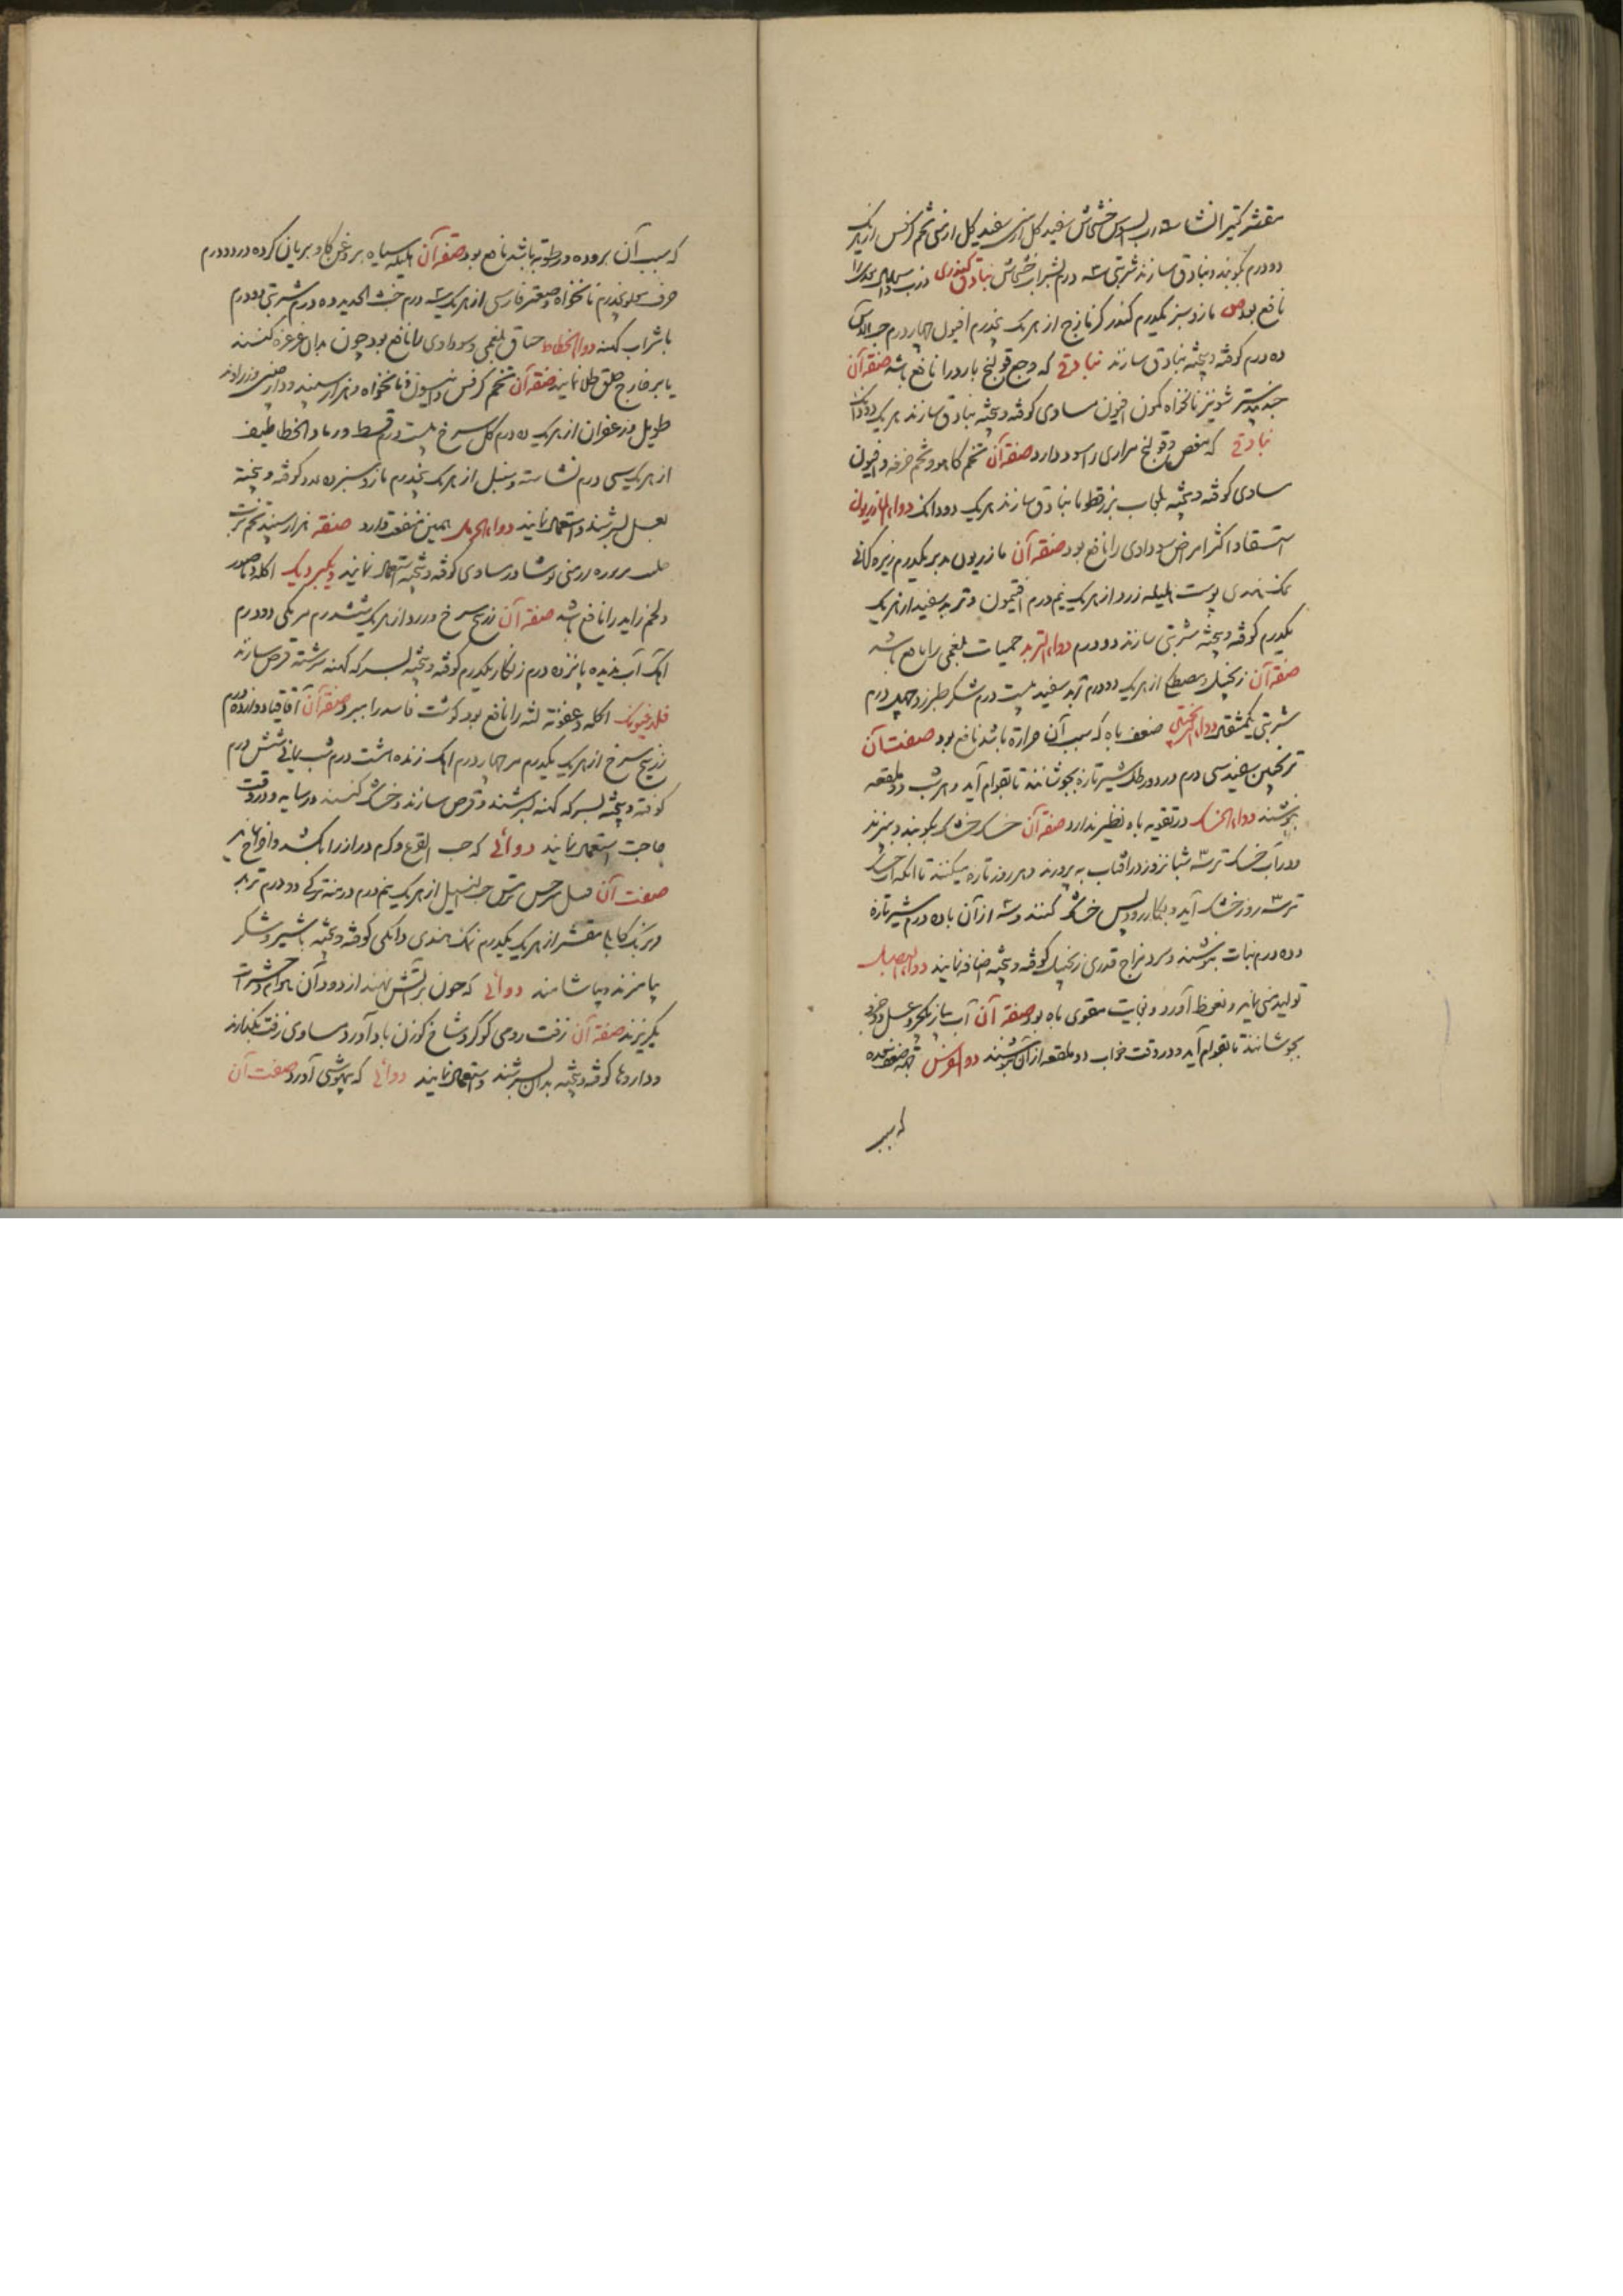 مقشر کتیرا نشاسته رب السوس خشخاش سفید گل ارمنی تخم کرفس از هریک
دودرم بکوبند و بنادق سازند شربتی سه درم بشراب خشخاش بنادق کندری
نافع بود ص مازو سبز یکدرم کندر کزمازج از هریک پنجدرم افیون چهار درم حب الاس
ده درم کوفته و بیخته بنادق سازند بنادقی که وجع قولنج بارد را نافع باشد صفة آن
جندبیدستر شونیز نانخواه کمون افیون مساوی کوفته و بیخته بنادق سازند هریک دو دانک
بنادقی که مغص و قولنج مراری را سود دارد صفة آن تخم کاهو و تخم خرفه و افیون
مساوی کوفته و بیخته بلعاب بزرقطونا بنادق سازند هریک دو دانک دواء المازریون
استسقا و اکثر امراض سوداوی را نافع بود صفة آن مازریون مدبر یکدرم زیره کرمانی
نمک هندی پوست هلیله زرد از هریک نیم درم افتیمون و تربد سفید از هریک
یکدرم کوفته و بیخته شربتی سازند دودرم دواء التربد حمیات بلغمی را نافع باشد
صفة آن زنجبیل و مصطکی از هریک دودرم تربد سفید بیست درم شکر طبرزد چهل درم
شربتی یکمثقال ضعف باه که بسبب آن حرارة باشد نافع بود صفت آن
ترنجبین سفید سی درم در دو رطل شیر تازه بجوشانند تا بقوام آید و هر شب دو ملعقه
بنوشند دواء الخسک در تقویه باه نظیر ندارد صفة آن خسک خشک بکوبند و ببیزند
و در آب خسک تر سه شبانروز در افتاب به پرورند و هر روز تازه میکنند تا آنکه آب خسک
تر سه روز خشک آید و بکار رود پس خشک کنند و سه از آن با ده درم شیر تازه
و ده درم نبات بنوشند و سرد مزاج قدری زنجبیل کوفته و بیخته اضافه نمایند دواء البصل
تولید منی نماید و نعوظ آورد و بغایت مقوی باه بود صفة آن آب پیاز یکجزو عسل دو جزو
بجوشانند تا بقوام آید و در وقت خواب دو ملعقه از آن بنوشند جهة ضعف معده
که بسبب
که بسبب آن بروده و رطوبة باشد نافع بود صفة آن هلیله سیاه بروغن گاو بریان کرده ده درم
حرف پنجدرم نانخواه و صعتر فارسی از هریک سه درم خبث الحدید ده درم شربتی دودرم
با شراب کهنه دواء الخطاطیف خناق بلغمی و سوداوی را نافع بود چون بدان غرغره کنند
یا بر خارج حلق طلا نمایند صفة آن تخم کرفس و انیسون و نانخواه و هزار اسپند و دارچینی و زراوند
طویل و زعفران از هریک ده درم گل سرخ بیست درم قسط و رماد الخطاطیف
از هریک سی درم نشاسته و سنبل از هریک پنجدرم مازو سبز ده عدد کوفته و بیخته
بعسل بسرشند و استعمال نمایند دواء الحرمل همین منفعت دارد صفة هزار اسپند تخم ترب
نوشادر مساوی کوفته و بیخته استعمال نمایند دیکبردیک اکله و ناصور
و لحم زاید را نافع باشد صفة آن زرنیخ سرخ و زرد از هریک ششدرم مرمکی دودرم
آهک آب ندیده پانزده درم زنگار یکدرم کوفته و بیخته بسرکه کهنه سرشته قرص سازند
فلدفیون اکله و عفونة لثه را نافع بود گوشت فاسد را ببرد صفة آن اقاقیا دوازده درم
زرنیخ سرخ از هریک یکدرم مر چهار درم آهک زنده هشت درم شب یمانی شش درم
کوفته و بیخته بسرکه کهنه بسرشند و قرص سازند و خشک کنند در سایه و در وقت
حاجت استعمال نمایند دوائی که حب القرع و کرم دراز را بکشد و اخراج نماید
صفت آن ترمس حب النیل از هریک نیم درم درمنه ترکی دودرم تربد
و برنک کابلی مقشر از هریک یکدرم نمک هندی دانکی کوفته و بیخته با شیر و شکر
بیامیزند و بیاشامند دوائی که چون بر آتش نهند از دود آن هوام و حشرات
بگریزند صفة آن زفت رومی گوگرد شاخ گوزن بادآورد مساوی زفت بگدازند
و داروها کوفته و بیخته بدان بسرشند و استعمال نمایند دوائی که بیهوشی آورد صفت آن